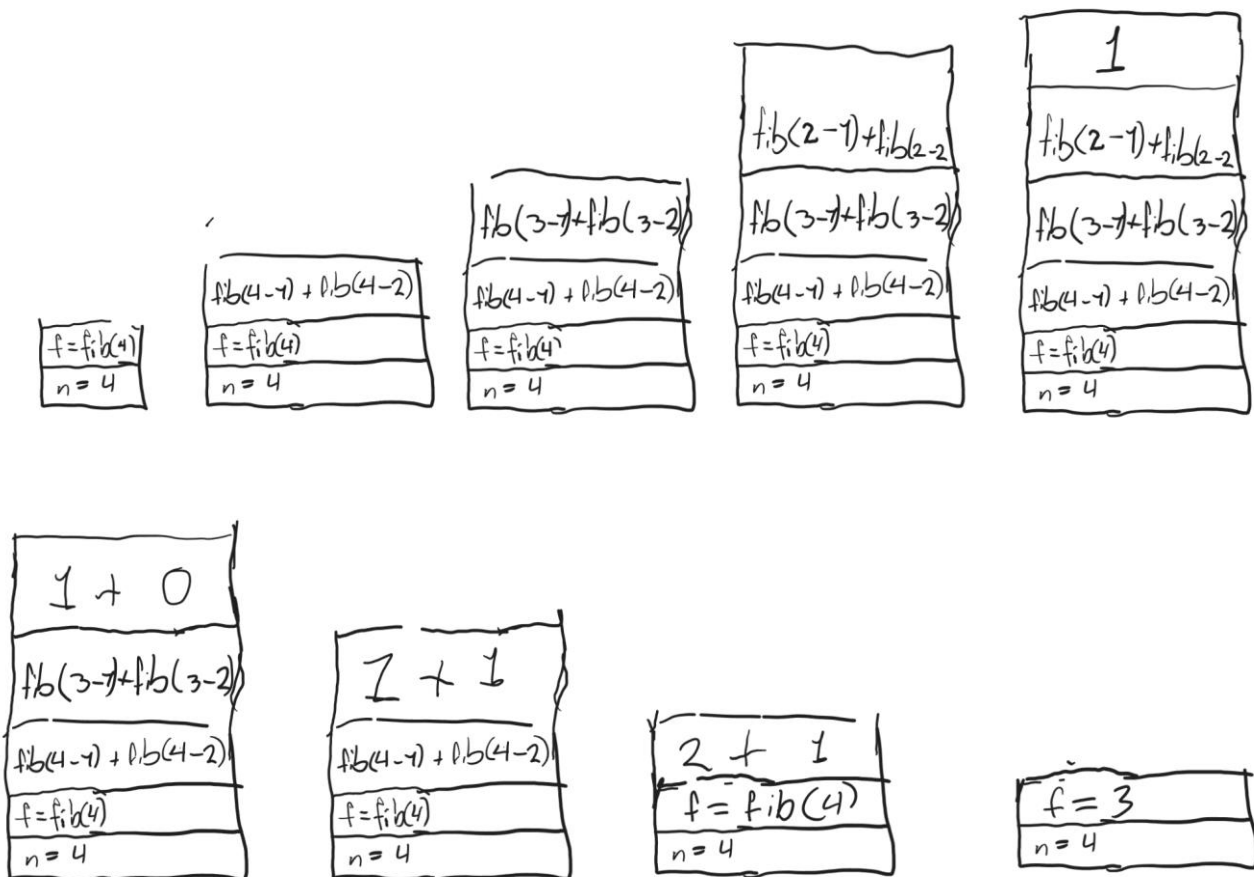 f=fib(4)
n = 4
fib(4-1) + fib(4-2)
f=fib(4)
n = 4
fib(3-1)+fib(3-2)
fib(4-1) + fib(4-2)
f=fib(4)
n = 4
fib(2-1)+fib(2-2
fib(3-1)+fib(3-2)
fib(4-1) + fib(4-2)
f=fib(4)
n = 4
1
fib(2-1)+fib(2-2
fib(3-1)+fib(3-2)
fib(4-1) + fib(4-2)
f=fib(4)
n = 4
1 + 0
fib(3-1)+fib(3-2)
fib(4-1) + fib(4-2)
f=fib(4)
n = 4
1 + 1
fib(4-1) + fib(4-2)
f=fib(4)
n = 4
2 + 1
f = fib(4)
n = 4
f = 3
n = 4